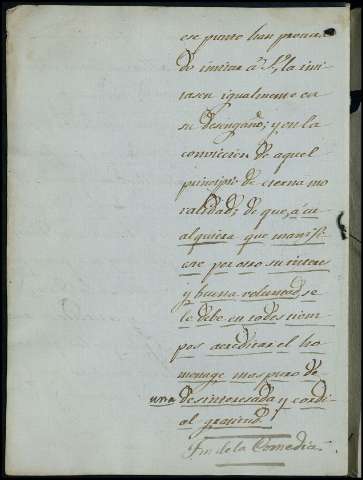 ese punto han procura
do imitar a S.ª, la imi
tasen igualmente en
su desengaño; y en la
convicción de aquel
principio de eterna mo
ralidad; de que, á cu
alquiera que manifi
este por otro su interes
y buena voluntad, se
le debe en todos tiem
pos acreditar el ho
menage mas puro de
una desinteresada y cordi
al gratitud.
Fin de la Comedia.